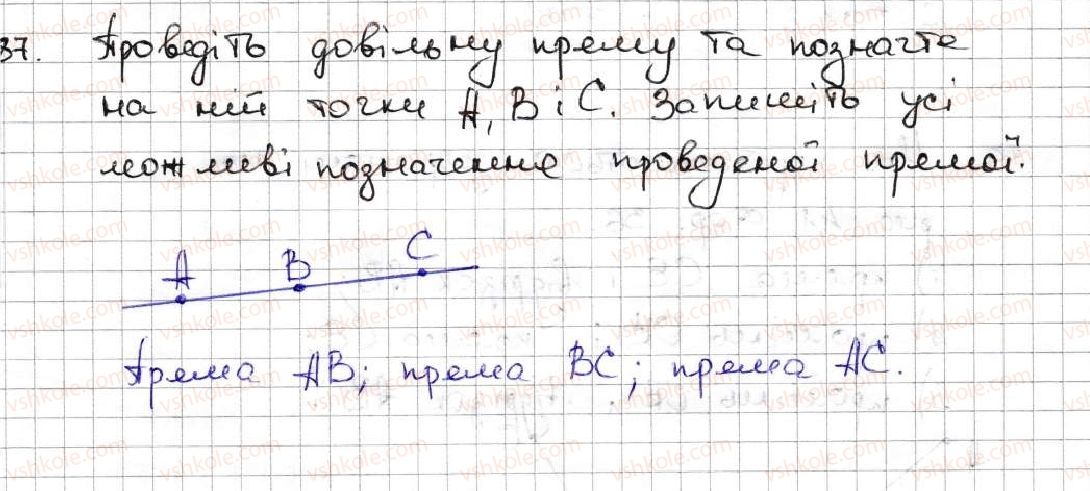 37. Проведіть довільну пряму та позначте
на ній точки A, B і C. Запишіть усі
можливі позначення проведеної прямої.
A B C
Пряма AB; пряма BC; пряма AC.